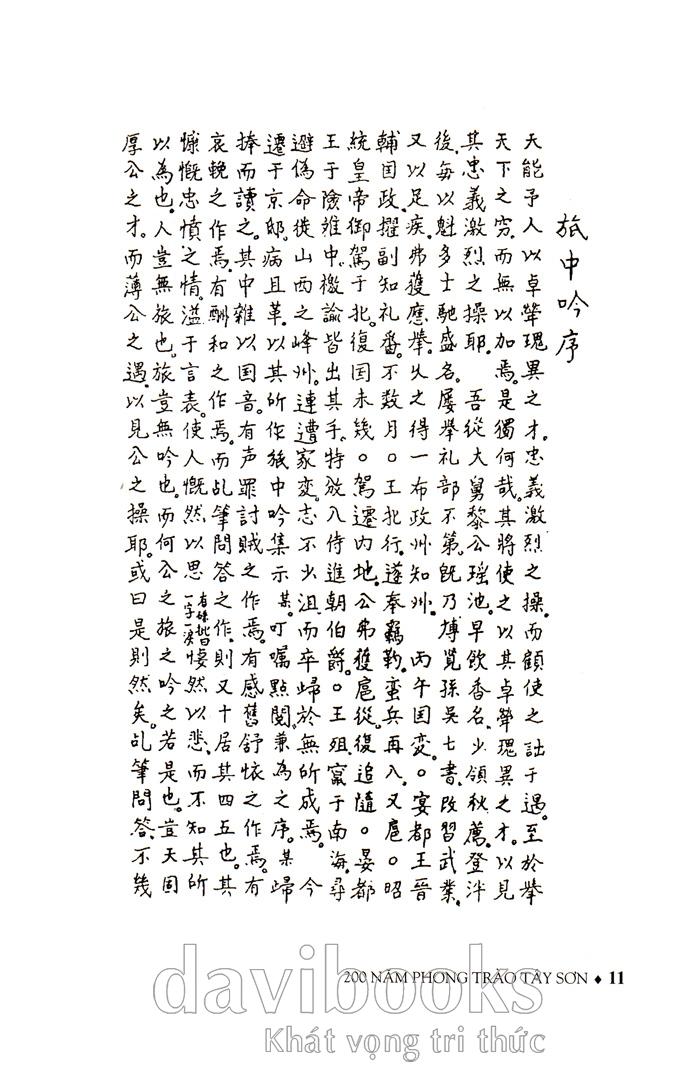 旅中吟序
天能予人以卓犖瑰異之才.忠義激烈之操.而顧使之詘于遇。至於舉
天下之窮.而無以加焉。是獨何哉。其將使之以其卓犖瑰異之才.以見
其忠義激烈之操耶. 吾從大舅黎公瑶池.早飲香名.少領秋薦.登泮
後.每以魁多士馳盛名.屢舉礼部不第。既乃博覧孫吳七書.改習武業.
又以足疾.弗獲應舉.乆之得一布政州知州. 丙午国变。宴都王晋
輔国政.擢副知礼番。不数月。王北行。遂奉羈勒.蛮兵再入.又扈。昭
統皇帝御駕于北。復国未幾。駕遷内地。公弗獲扈從。復追隨。晏都
王于險雑中.檄諭皆出其手。特放入侍進朝伯爵。王殂.竄于南海.尋
避偽命徙山西之峰州。連遭家变.志不少沮.而卒歸於無所成焉。 今
遷于京邸.病且革.以其所作旅中吟集示某。叮嘱點閲.兼為之序。某歸
捧而讀之。其中雑以国音。有声罪討賊之作焉。有感舊舒懐之作焉。有
哀輓之作焉.有酬和之作焉。而乩筆問答之作.則又十居其四五也。其
慷慨忠憤之情.溢于言表。使人慨然以思.悽然以悲.而不知其所
以為也。人豈無旅也。旅豈無吟也.而何公之旅之吟之若是也。豈天固
厚公之才。而薄公之遇.以見公之操耶。或曰是則然矣。乩筆問答.不幾
200 NĂM PHONG TRÀO TÂY SƠN ♦ 11
davibooks
Khát vọng tri thức